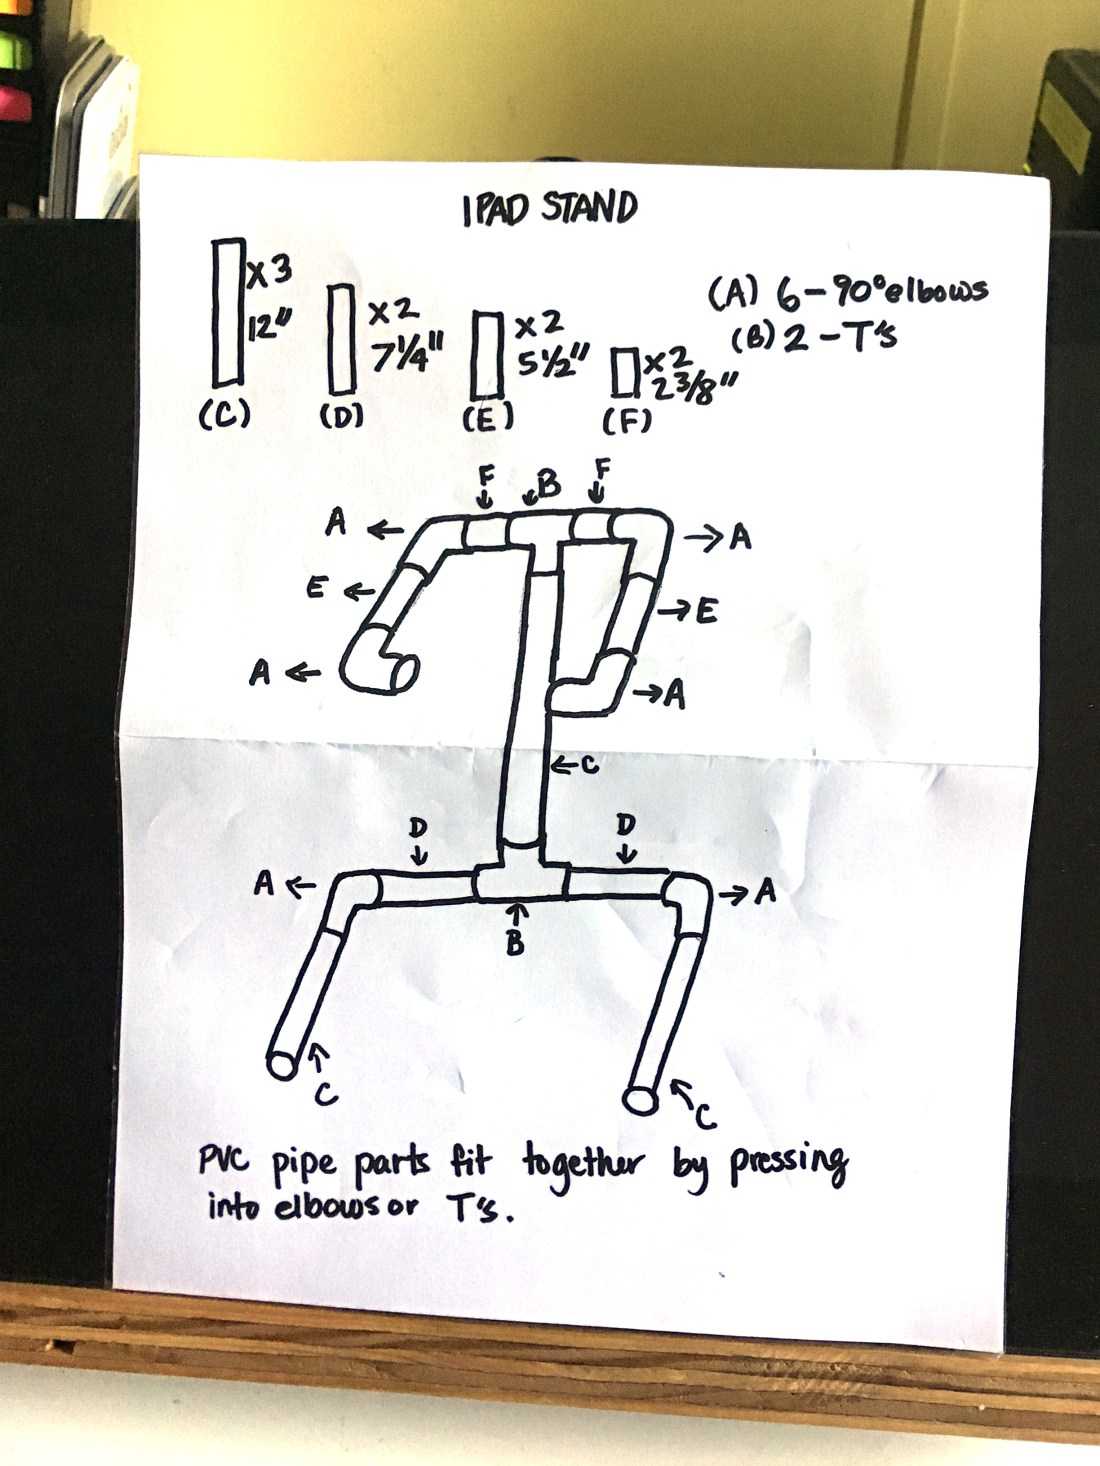 IPAD STAND
x3
12"
(C)
x2
7¼"
(D)
x2
5½"
(E)
x2
2⅜"
(F)
(A) 6-90° elbows
(B) 2-T's
F
B
F
A
A
E
E
A
A
C
D
D
A
A
B
C
C
PVC pipe parts fit together by pressing
into elbows or T's.